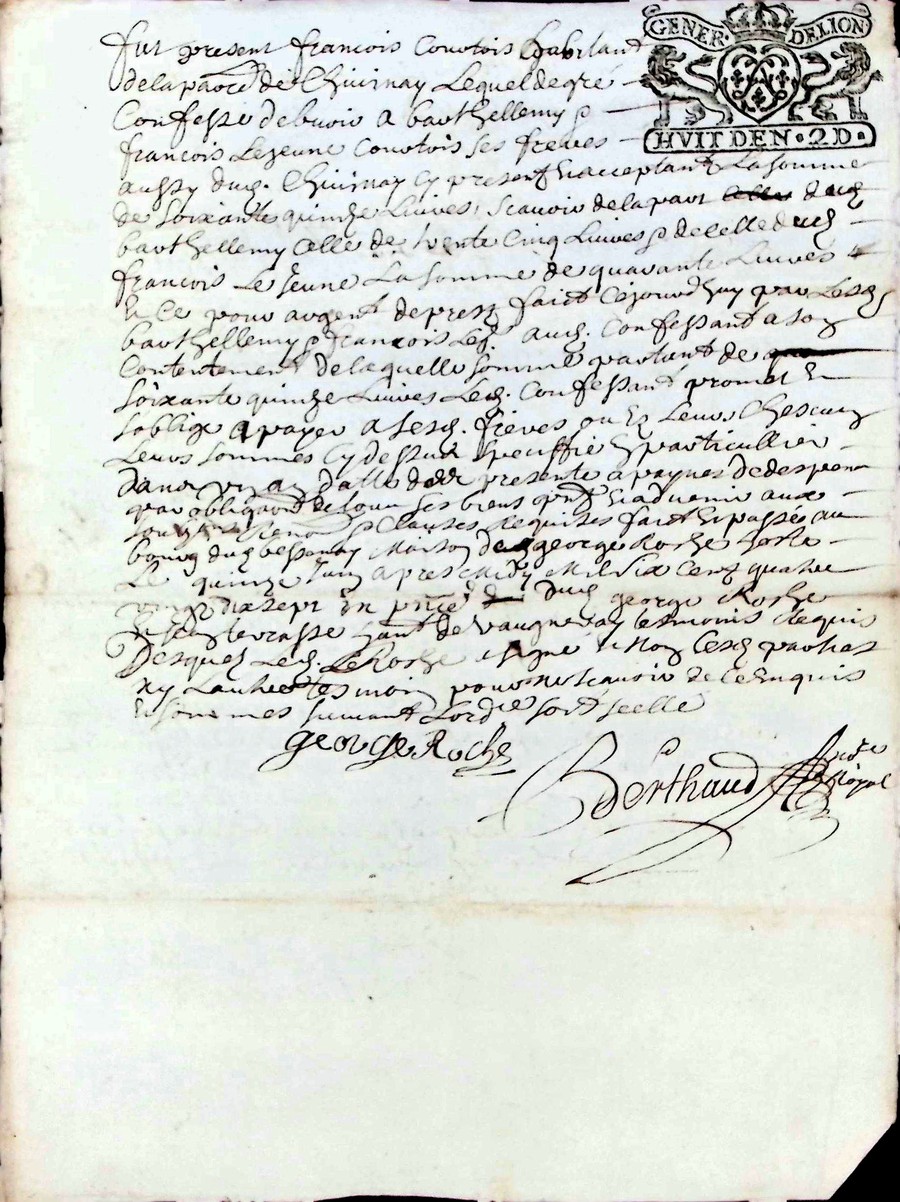 GENER DE LION
HVIT DEN • 2D •
fut present francois Courtois habitant
de la paroe de Chivirnay Lequel de gré
Confesse debvoir a barthellemy &
francois Lejeune Courtois ses freres
aussy dud. Chivirnay cy present & acceptant La somme
de soixante quinze Livres, Scavoir de la part dud
barthellemy Celle de trente Cinq Livres & de celle dud
francois Le jeune La somme de quarante Livres
& Ce pour argent de prest faict Cejourdhuy par Lesd
barthellemy & francois Led. aud. Confessant a son
Contentement de laquelle somme partant de
soixante quinze Livres Led. Confessant promet &
soblige a payer a sesd. freres ou Leurs Chescung
Leurs sommes cy dessus en particullier
Dans un an datte des presente a paynes de despens
par obligaon de tous ses biens & advenir aux
Clauses Requises faict & passée au
bourg de bessenay Maison dud george Roche
Le quinze Juin apres Midy Mil six Cent quatre
vingt dix sept En pnce dud george Roche
de vaugneray tesmoins Requis
Desquels Led. Roche a signé & Non Cesd parties
ny Lautre tesmoin pour ne scavoir de ce Enquis
& sommes suivant Lordre soit scellé
george Roche
Berthaud
Royal